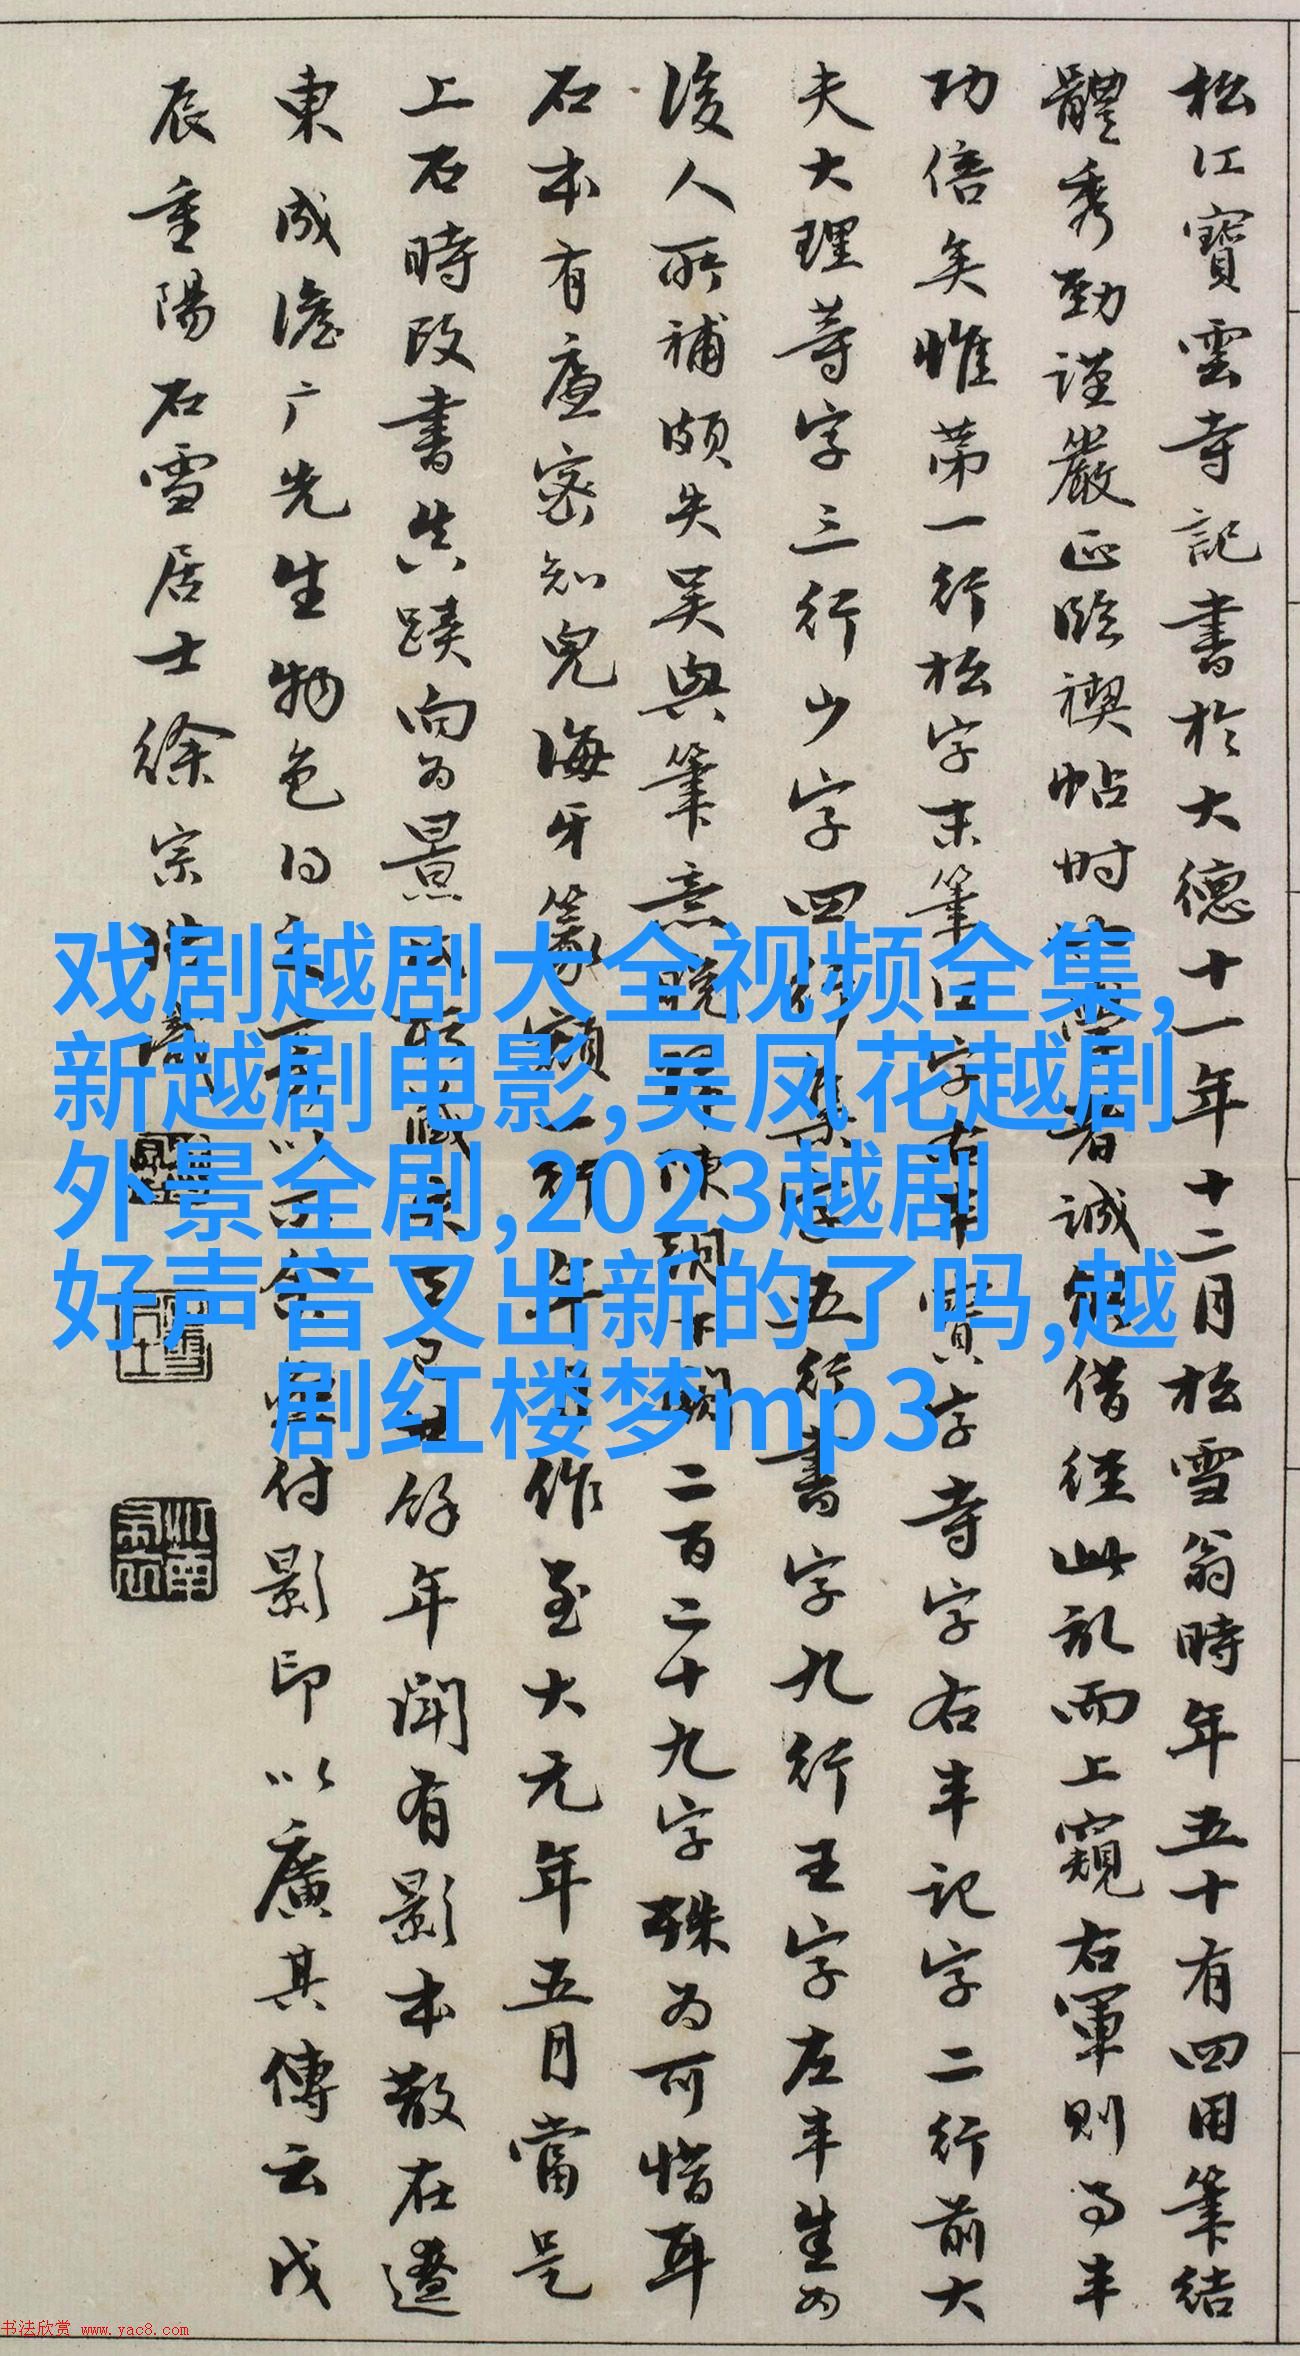 松江寶雲寺記書於大德十一年十二月松雪翁時年五十有四用筆結
體秀勁謹嚴正臨禊帖時者誠能借徑此刻而上窺右軍則事半
功倍矣惟第一行松字末筆字右半寶字寺字右半記字二行前大
夫大理等字三行少字四行集字五行書字九行王字左半生為
後人所補頗失吳興筆意二百二十九字殊為可惜耳
石本有盧密知兒海牙篆額一行年作至大元年五月當是
上石時改書真蹟向為景餘年聞有影本散在遼
東咸澹广先生物色得之付影印以廣其傳云戊
辰重陽石雪居士徐宗浩
戏剧越剧大全视频全集,
新越剧电影,吴凤花越剧
外景全剧,2023越剧
好声音又出新的了吗,越
剧红楼梦mp3
书法欣赏 www.yac8.com